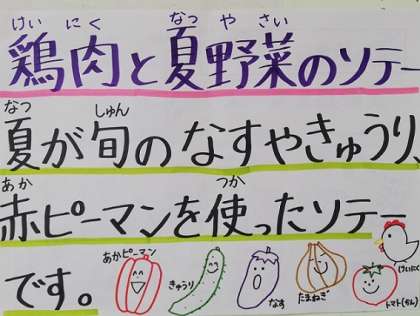 けい にく なっ や さい
鶏肉と夏野菜のソテー
なつ しゅん
夏が旬のなすやきゅうり、
あか つか
赤ピーマンを使ったソテー
です。
あかピーマン
きゅうり
なす
たまねぎ
トマト(ちん)
けいにく